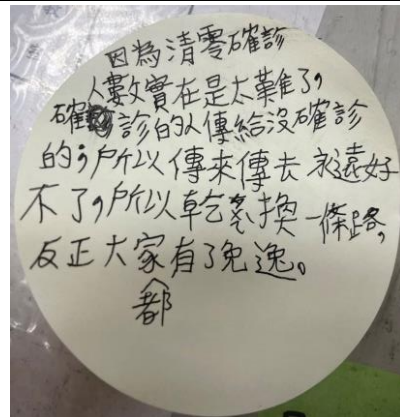 因為清零確診
人數實在是太難了,
確診的人傳給沒確診
的,所以傳來傳去 永遠好
不了,所以乾脆換一條路,
反正大家有了免逸。
都